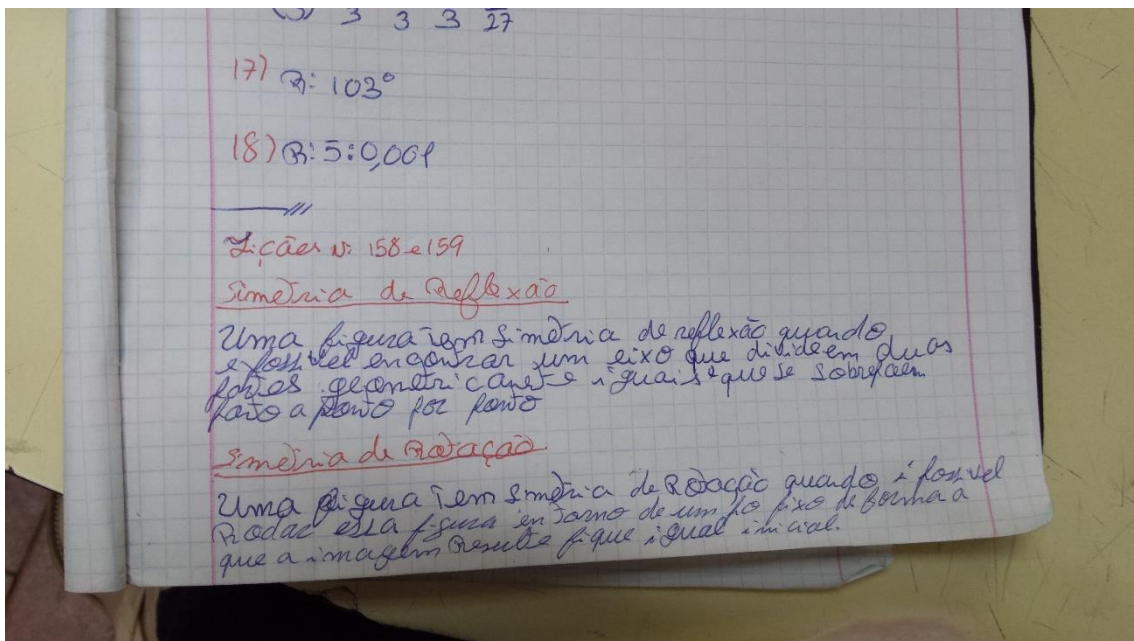 3 3 3 27
17) R: 103°
18) R: 5:0,001
Lições Nº 158 e 159
Simetria de Reflexão
Uma figura tem simetria de reflexão quando
é possivel encontrar um eixo que divide em duas
partes geometricamete iguais e que se sobrepoem
a ponto por ponto
Simetria de Rotação
Uma figura tem Simetria de Rotação quando é possivel
Rodar essa figura en torno de um fixo de forma a
que a imagem Resulte fique igual inicial.